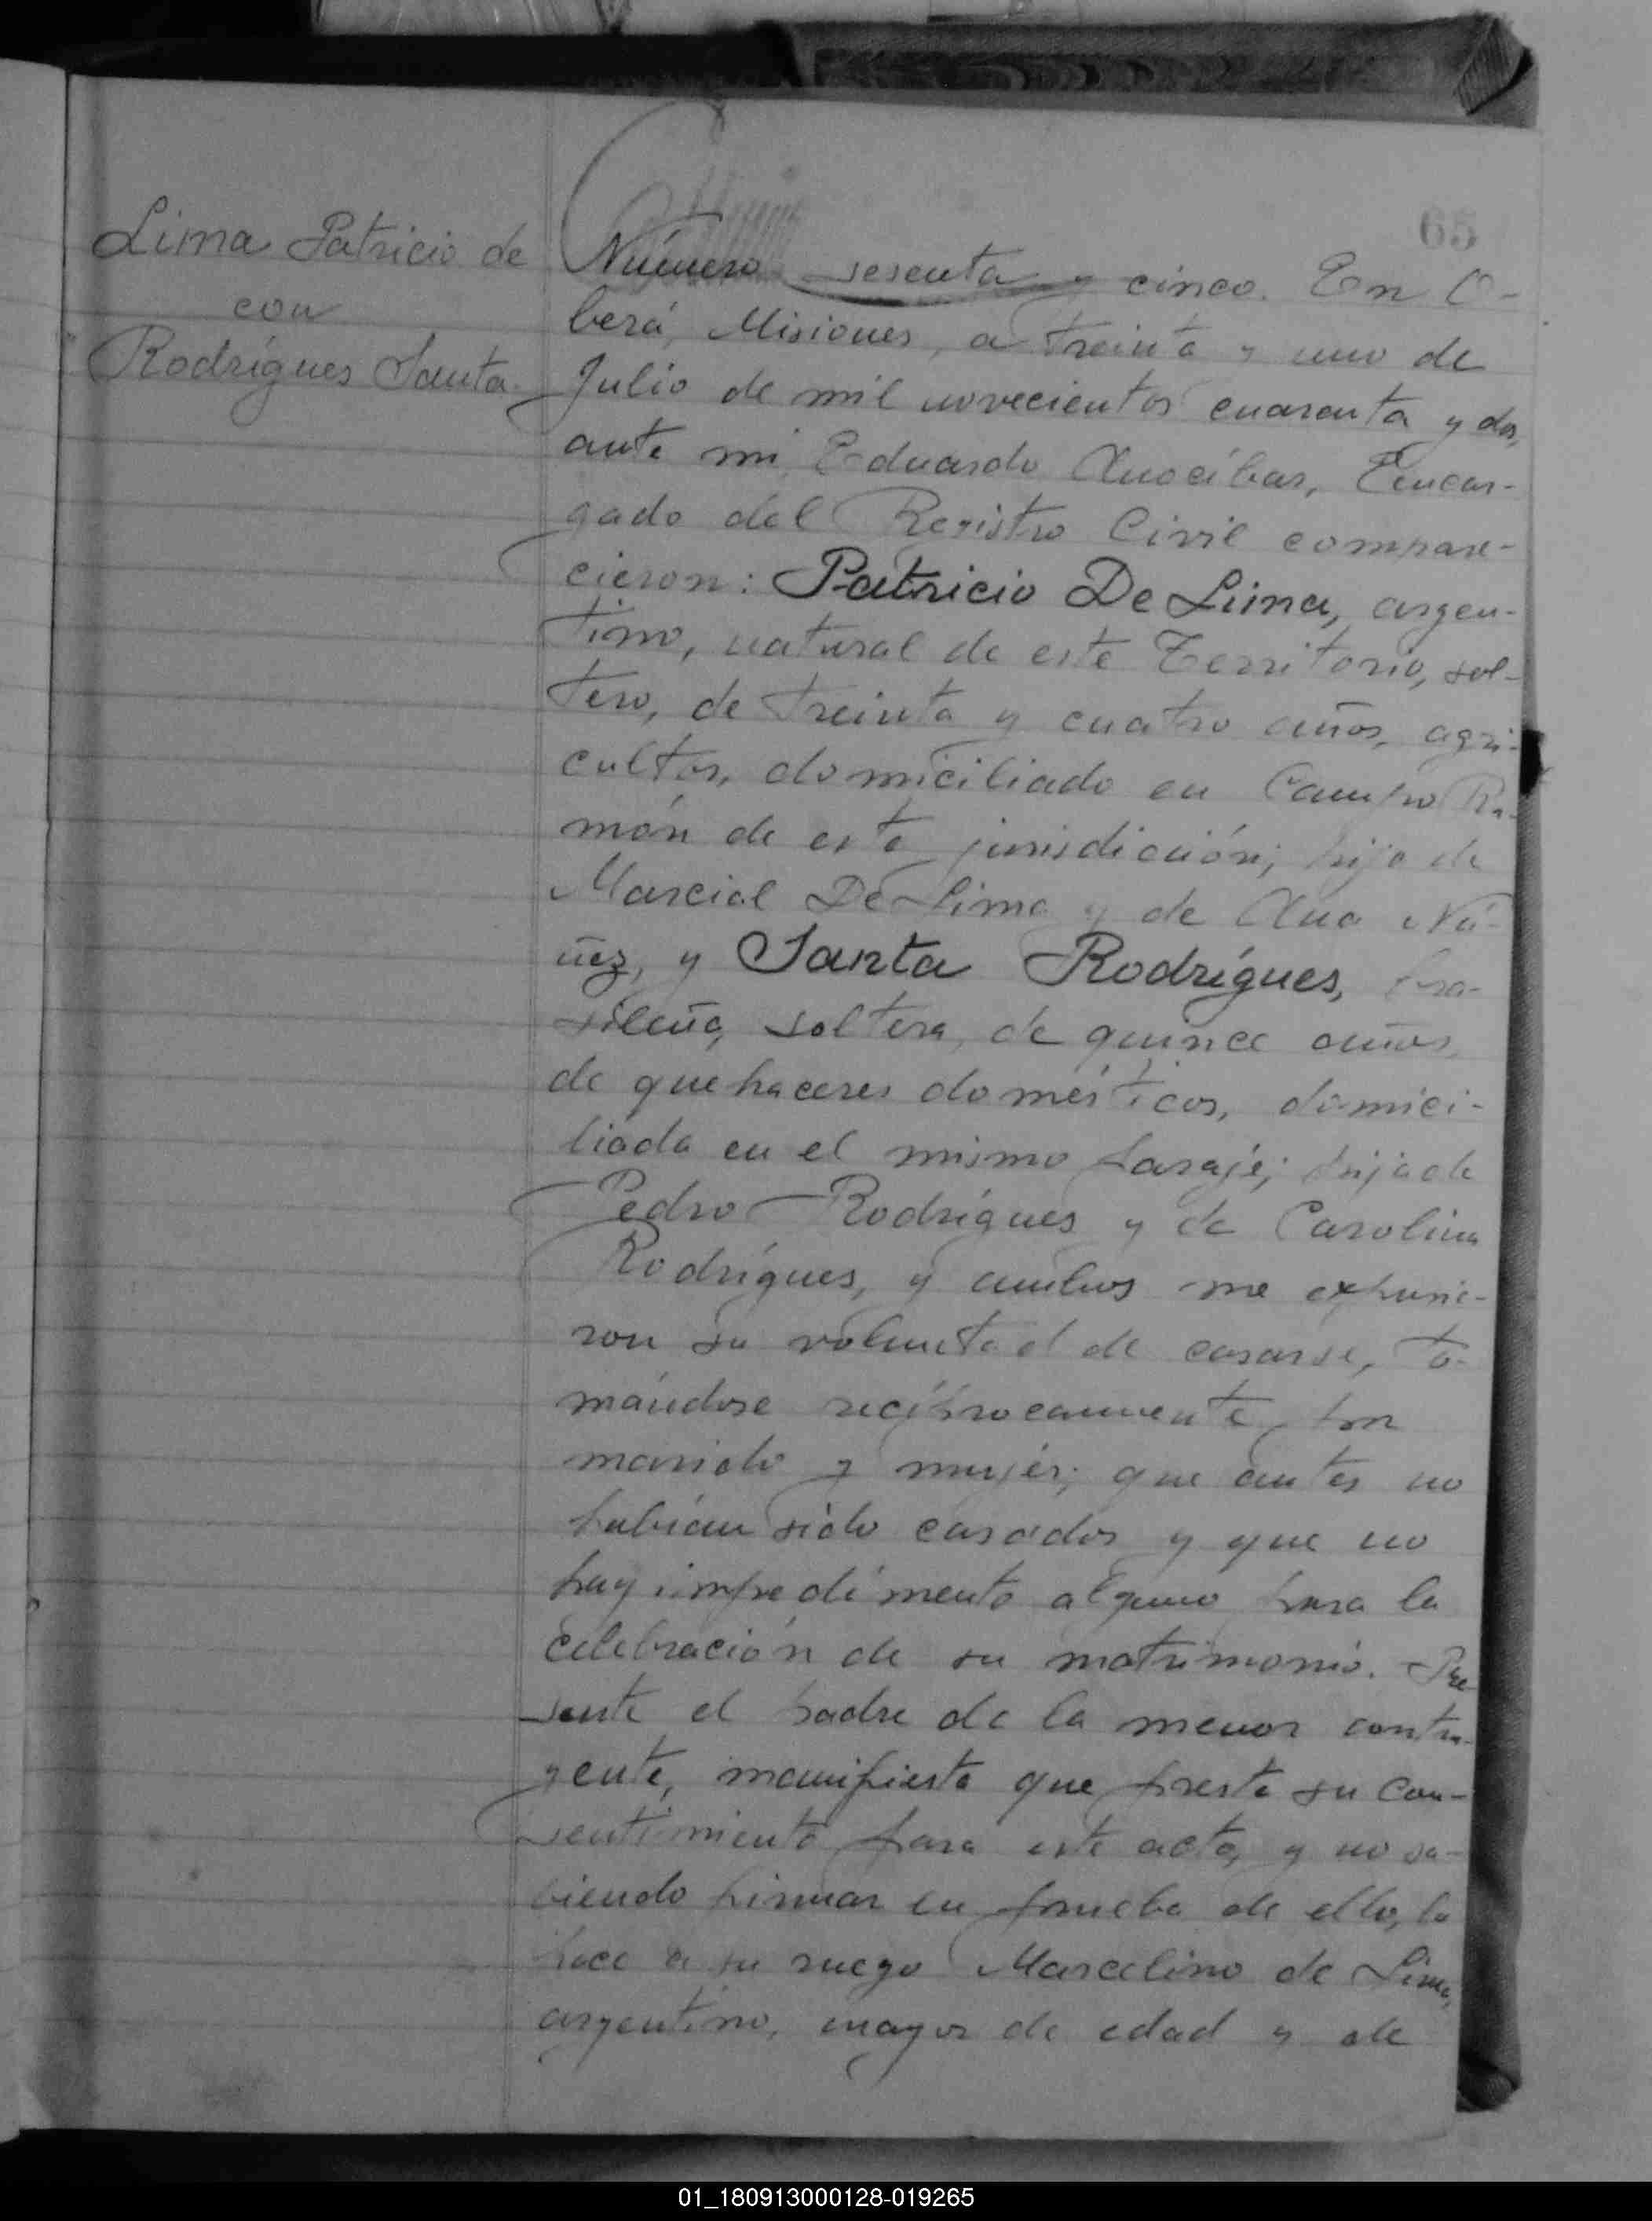 65
Lima Patricio de
con
Rodrígues Santa.
Número sesenta y cinco. En O-
berá, Misiones, a treinta y uno de
Julio de mil novecientos cuarenta y dos,
ante mi Eduardo Anocíbar, Encar-
gado del Registro Civil compare-
cieron: Patricio De Lima, argen-
tino, natural de este Territorio, sol-
tero, de treinta y cuatro años, agri-
cultor, domiciliado en Campo Ra-
món de esta jurisdicción; hijo de
Marcial De Lima y de Ana Nú-
ñez, y Santa Rodrígues, bra-
sileña, soltera, de quince años,
de quehaceres domésticos, domici-
liada en el mismo paraje; hija de
Pedro Rodrígues y de Carolina
Rodrígues, y ambos me expusie-
ron su voluntad de casarse, to-
mándose recíprocamente por
marido y mujer; que antes no
habían sido casados y que no
hay impedimento alguno para la
celebración de su matrimonio. Pre
sente el padre de la menor contra-
yente, manifiesta que presta su con-
sentimiento para este acto, y no sa-
biendo firmar en prueba de ello, lo
hace a su ruego Marcelino de Lima,
argentino, mayor de edad y de
01_180913000128-019265